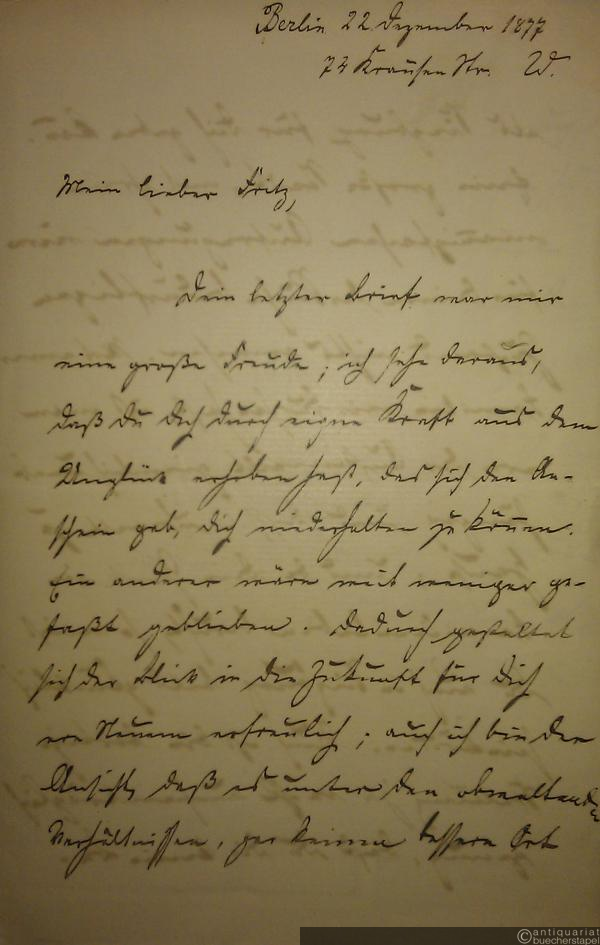 Berlin 22. Dezember 1877
74 Krausen Str. W.
Mein lieber Fritz,
Dein letzter Brief war mir
eine große Freude; ich sehe daraus,
daß du dich durch eigne Kraft aus dem
Unglück erhoben hast, das sich den An-
schein gab, dich niederhalten zu können.
Ein anderer wäre weit weniger ge-
faßt geblieben. Dadurch gestaltet
sich der Blick in die Zukunft für dich
von Neuem erfreulich; auch ich bin der
Ansicht, daß es unter den obwaltenden
Verhältnissen, gar keinen bessern Ort
antiquariat
buecherstapel